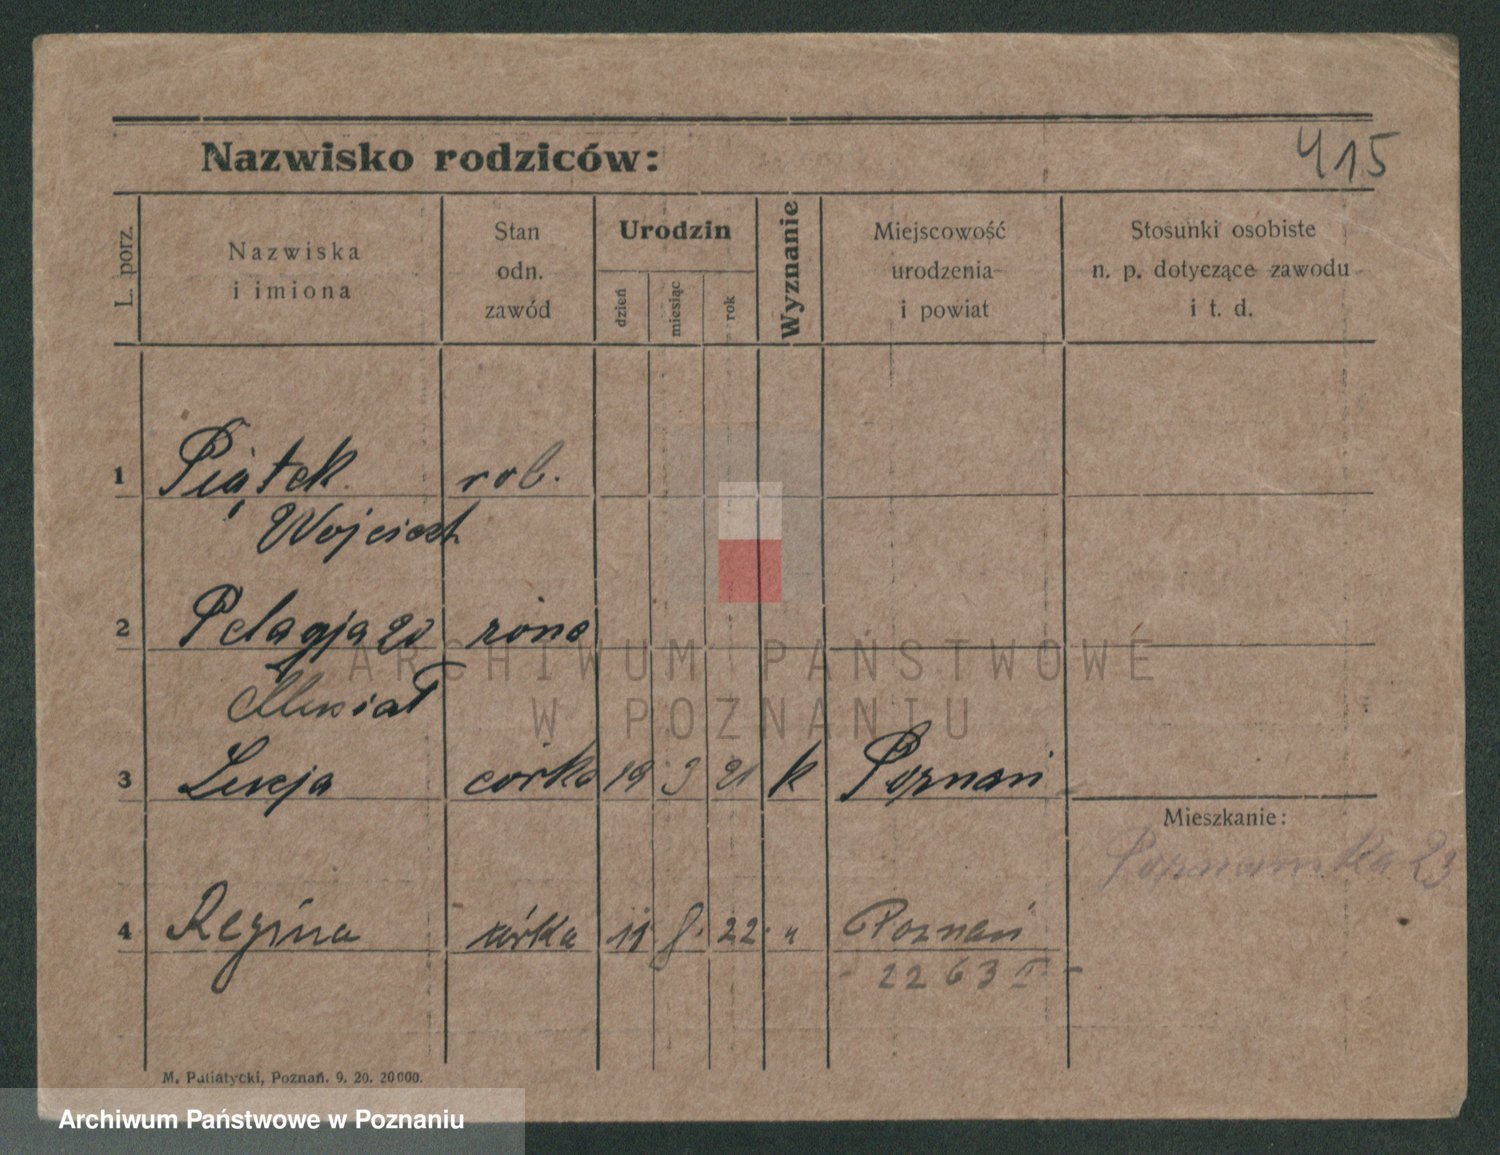 Nazwisko rodziców:
415
L. porz.
Nazwiska
i imiona
Stan
odn.
zawód
Urodzin
dzień
miesiąc
rok
Wyznanie
Miejscowość
urodzenia
i powiat
Stosunki osobiste
n. p. dotyczące zawodu
i t. d.
1 Piątek rob.
Wojciech
2 Pelagja zd żona
ARCHIWUM PAŃSTWOWE
W POZNANIU
3 Lucja córka 19 3 21 k Poznań
Mieszkanie:
Poznańska 23
4 Regina córka 11 8. 22. " Poznań
- 2263 I -
M. Putiatycki, Poznań. 9. 20. 20000.
Archiwum Państwowe w Poznaniu